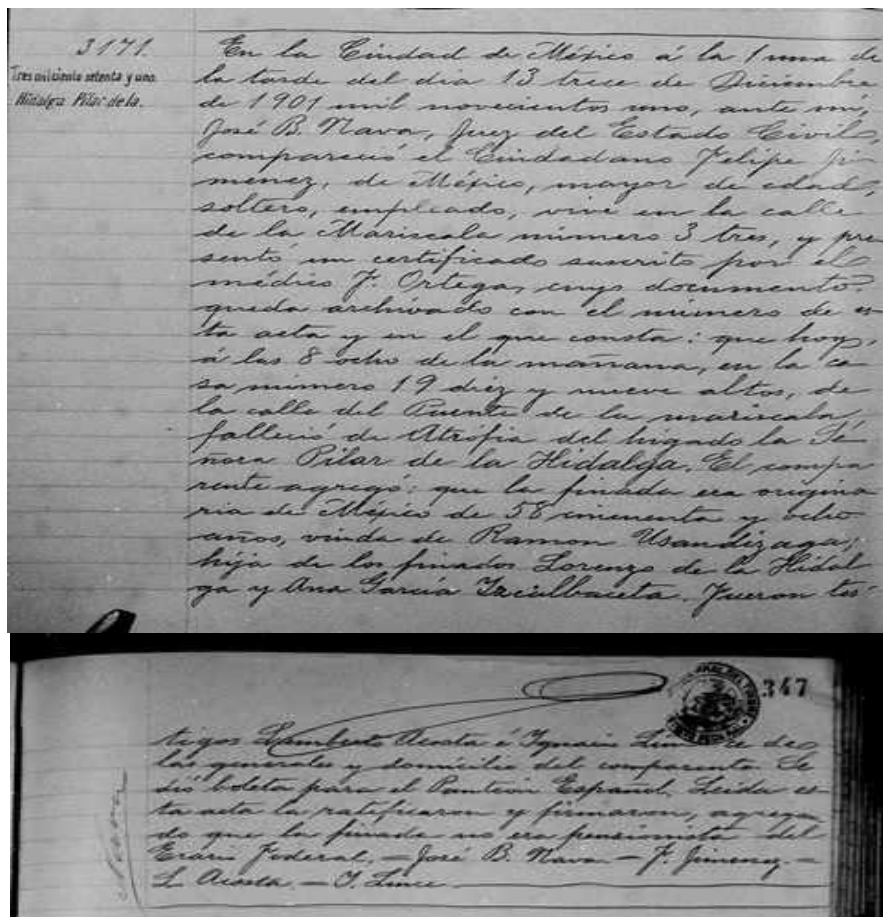 3171.
Tres mil ciento setenta y uno.
Hidalga Pilar de la.
En la Ciudad de México á la 1 una de
la tarde del dia 13 trece de Diciembre
de 1901 mil novecientos uno, ante mí,
José B. Nava, Juez del Estado Civil,
compareció el Ciudadano Felipe Ji
menez, de México, mayor de edad,
soltero, empleado, vive en la calle
de la Mariscala número 3 tres, y pre
sentó un certificado suscrito por el
médico F. Ortega, cuyo documento
queda archivado con el número de es
ta acta y en el que consta: que hoy,
á las 8 ocho de la mañana, en la ca
sa numero 19 diez y nueve altos, de
la calle del Puente de la mariscala,
falleció de Atrófia del higado la Se
ñora Pilar de la Hidalga. El compa
rente agregó: que la finada era origina
ria de México de 58 cincuenta y ocho
años, viuda de Ramon Usandizaga,
hija de los finados Lorenzo de la Hidal
ga y Ana García Icazbalceta. Fueron tes
347
tigos Lamberto Acosta é Ignacio Lince de
las generales y domicilio del comparente. Se
dió boleta para el Panteon Español. Leida es
ta acta la ratificaron y firmaron, agregan
do que la finada no era pensionista del
Erario Federal. — José B. Nava — F. Jimenez. —
L. Acosta. — I. Lince.